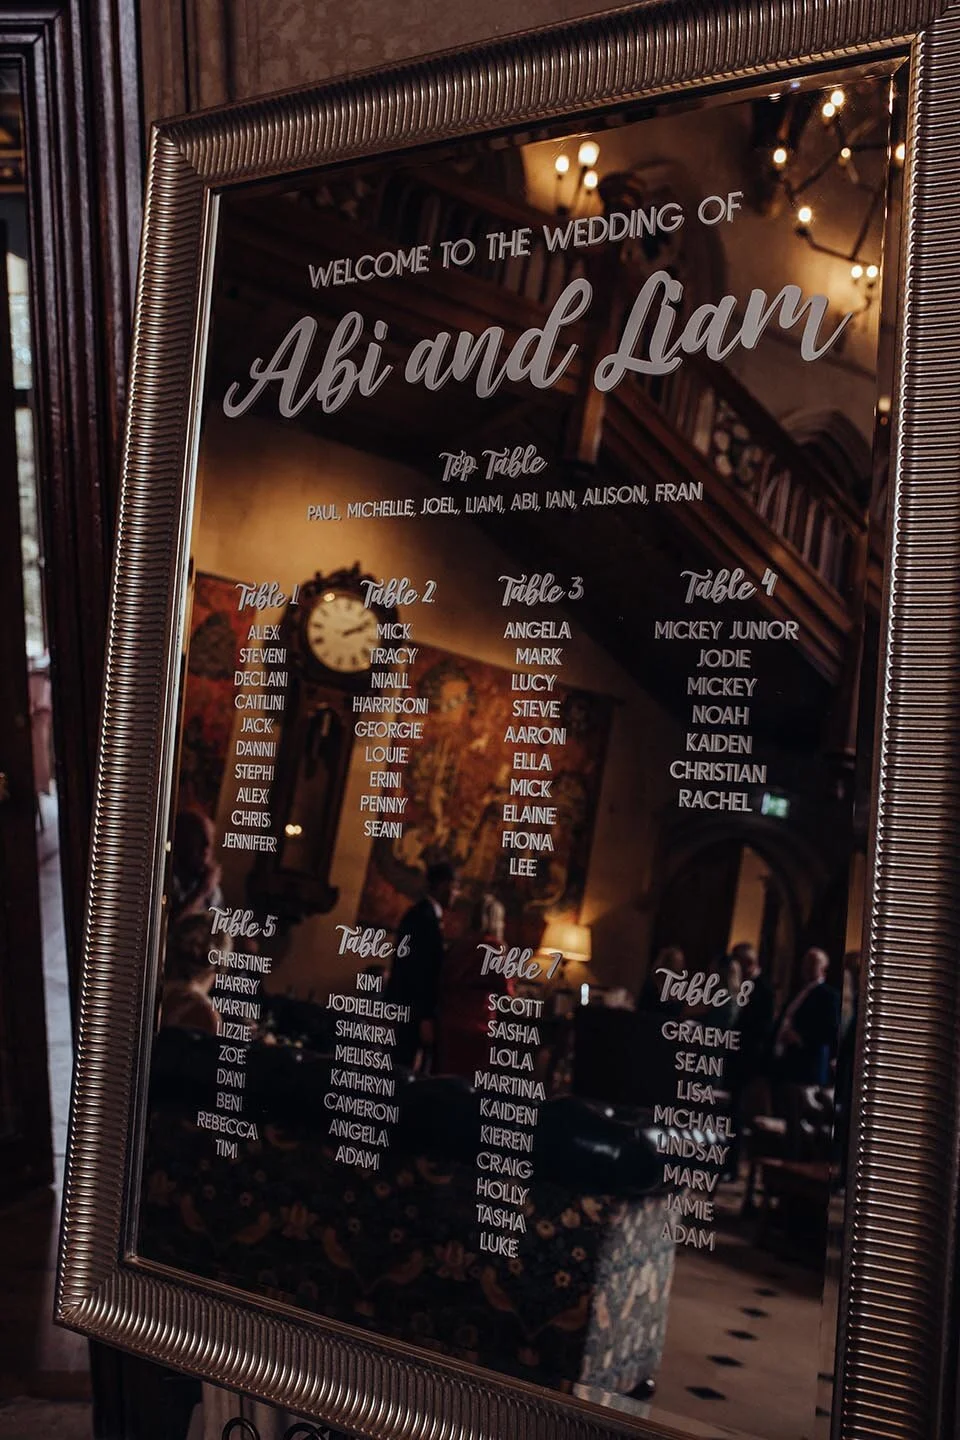 WELCOME TO THE WEDDING OF
Abi and Liam
Top Table
PAUL, MICHELLE, JOEL, LIAM, ABI, IAN, ALISON, FRAN
Table 1
ALEX
STEVEN
DECLAN
CAITLIN
JACK
DANNI
STEPH
ALEX
CHRIS
JENNIFER
Table 2
MICK
TRACY
NIALL
HARRISON
GEORGIE
LOUIE
ERIN
PENNY
SEAN
Table 3
ANGELA
MARK
LUCY
STEVE
AARON
ELLA
MICK
ELAINE
FIONA
LEE
Table 4
MICKEY JUNIOR
JODIE
MICKEY
NOAH
KAIDEN
CHRISTIAN
RACHEL
Table 5
CHRISTINE
HARRY
MARTIN
LIZZIE
ZOE
DAN
BEN
REBECCA
TIM
Table 6
KIM
JODIELEIGH
SHAKIRA
MELISSA
KATHRYN
CAMERON
ANGELA
ADAM
Table 7
SCOTT
SASHA
LOLA
MARTINA
KAIDEN
KIEREN
CRAIG
HOLLY
TASHA
LUKE
Table 8
GRAEME
SEAN
LISA
MICHAEL
LINDSAY
MARV
JAMIE
ADAM